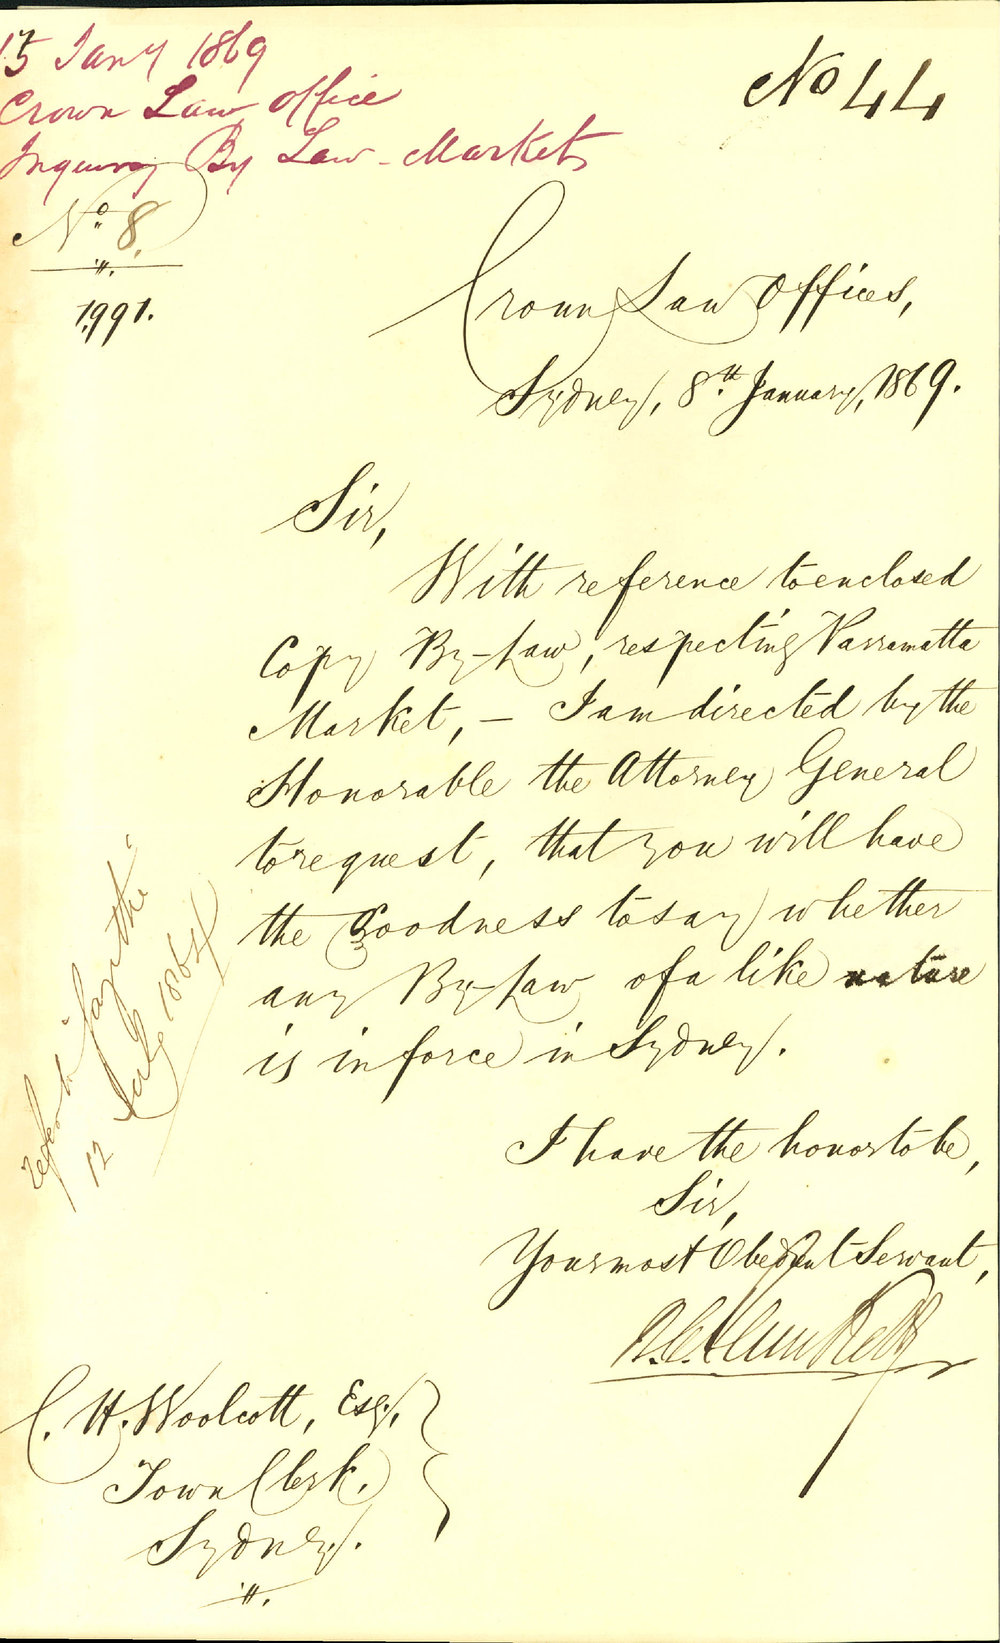 15 Jany 1869
Crown Law Office
Inquiry By Law - Markets
No 44
No. 8.
1991.
Crown Law Offices,
Sydney, 8th January, 1869.
Sir,
With reference to enclosed
Copy By-Law, respecting Parramatta
Market, — I am directed by the
Honorable the Attorney General
to request, that you will have
the Goodness to say whether
any By-Law of a like nature
is in force in Sydney.
I have the honor to be,
Sir,
Your most Obedient Servant,
C. H. Woolcott, Esq.,
Town Clerk.
Sydney.
12 July 1864